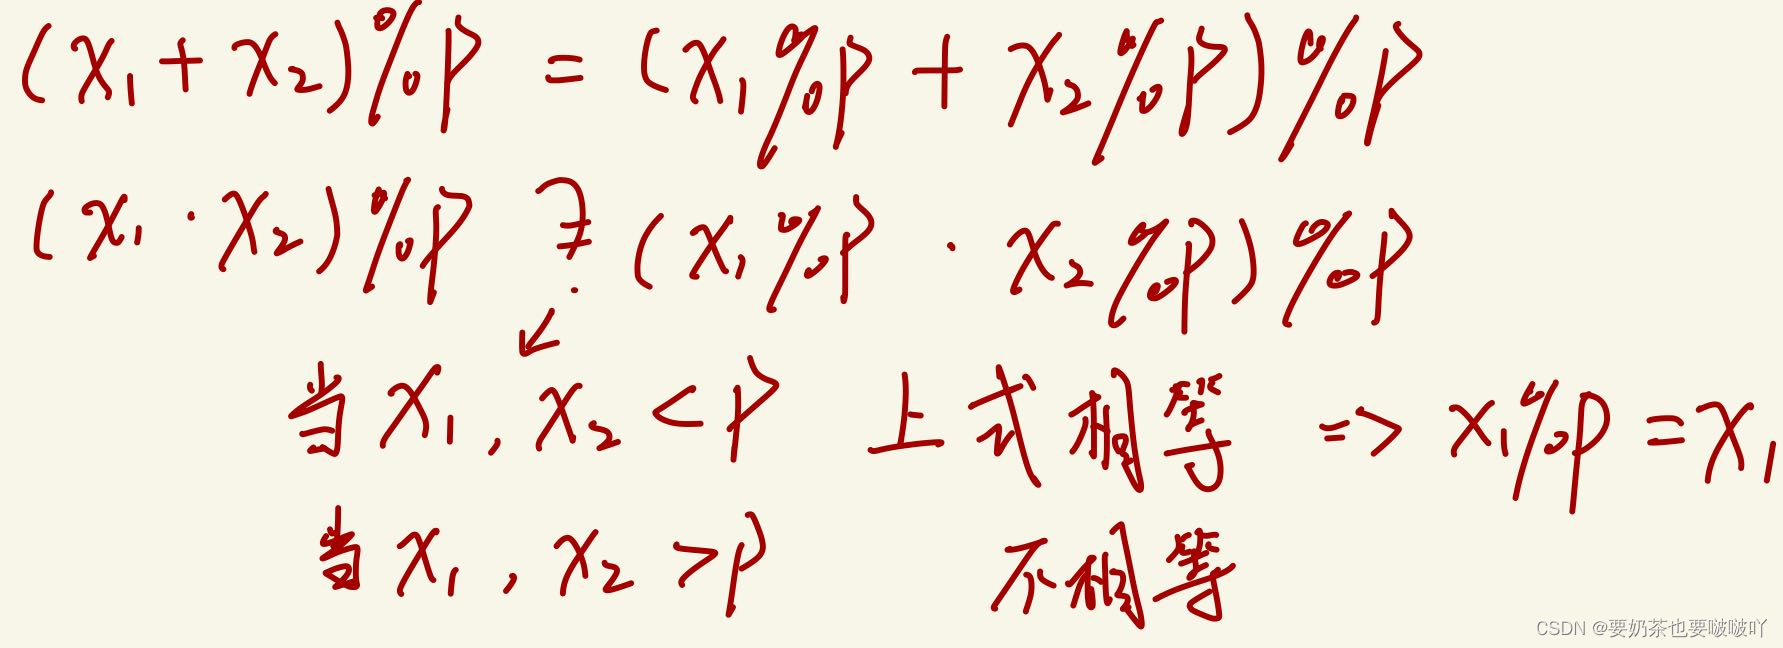 (x₁ + x₂)%p = (x₁%p + x₂%p)%p
(x₁ · x₂)%p ≟ (x₁%p · x₂%p)%p
当 x₁, x₂ < p 上式相等 => x₁%p = x₁
当 x₁, x₂ > p 不相等
CSDN @要奶茶也要啵啵吖